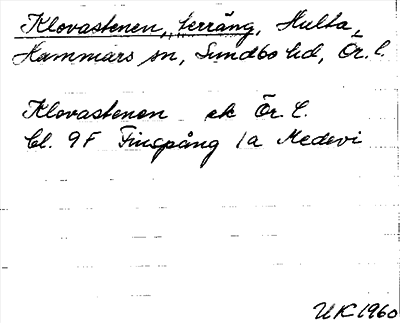 Klovastenen, terräng, Hulta,
Hammars sn, Sundbo hd, Ör. l.
Klovastenen ek Ör. l.
bl. 9F Finspång 1a Medevi
UK 1960